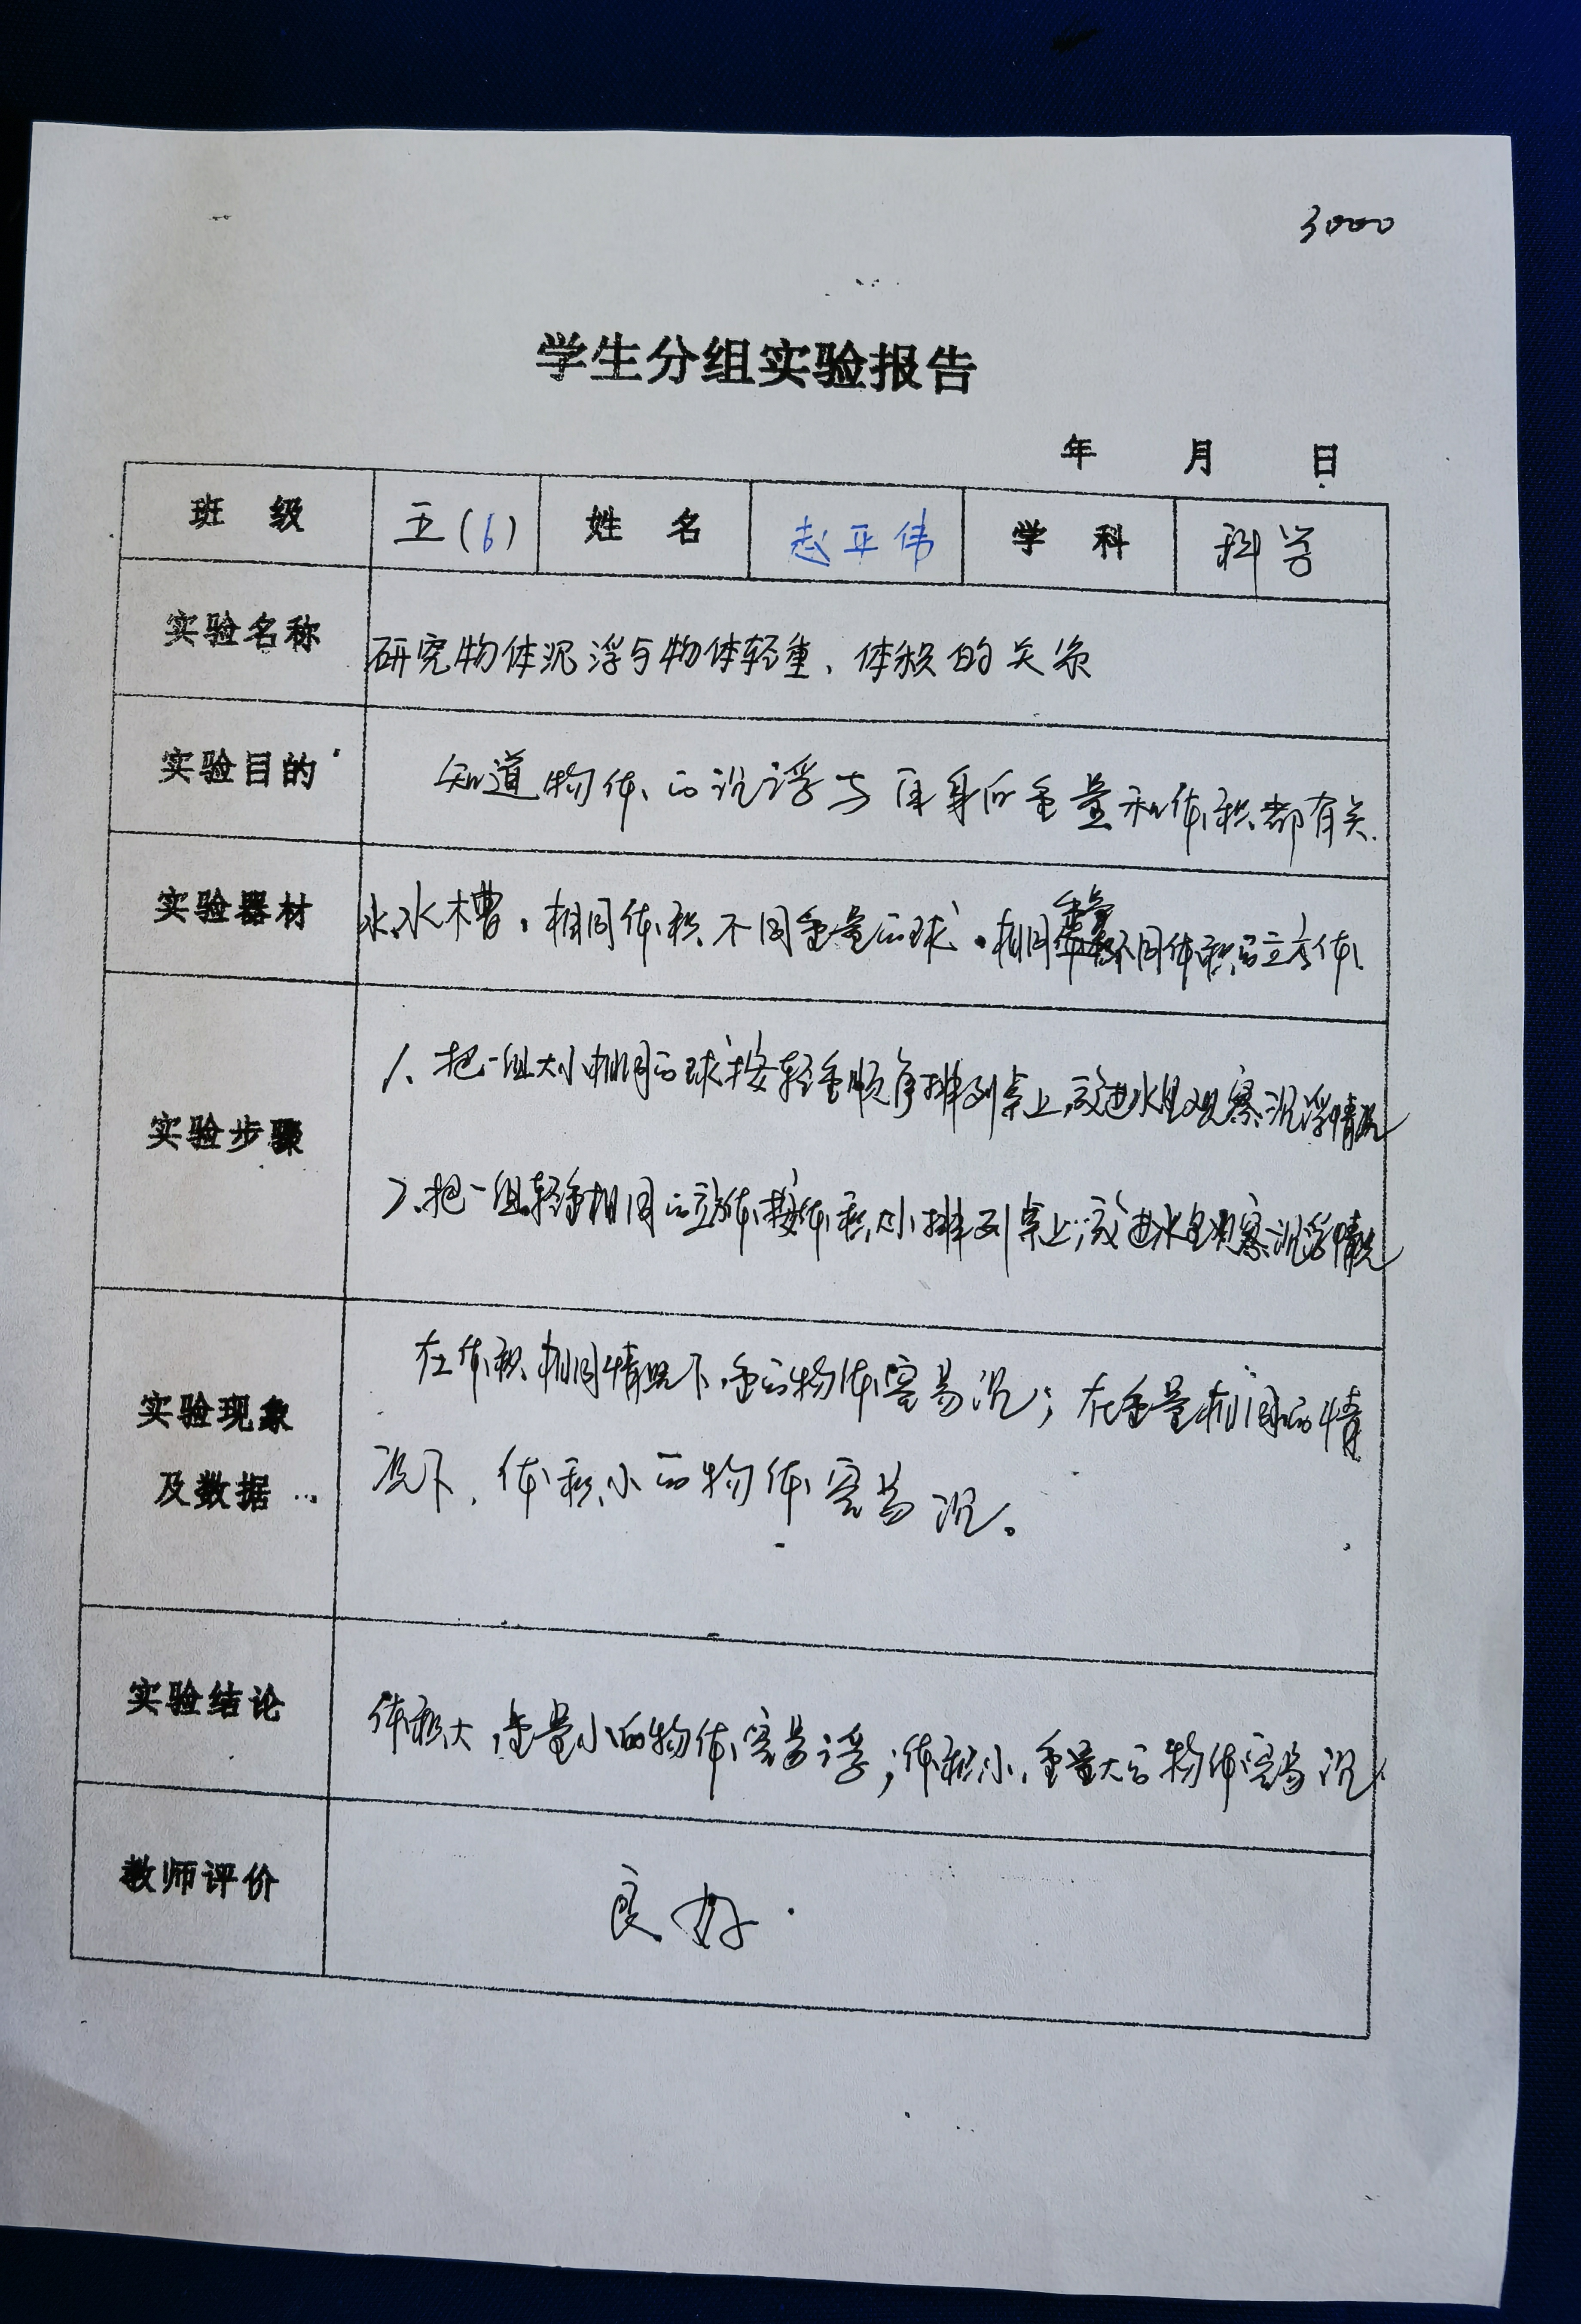 3000
学生分组实验报告
年 月 日
班 级 五(6) 姓 名 赵亚伟 学 科 科学
实验名称 研究物体沉浮与物体轻重、体积的关系
实验目的 知道物体的沉浮与自身的重量和体积都有关.
实验器材 水、水槽、相同体积不同重量的球、相同重量不同体积的立方体
实验步骤
1、把一组大小相同的球按轻重顺序排列桌上,放进水里观察沉浮情况
2、把一组轻重相同的立方体按体积大小排列桌上,放进水里观察沉浮情况
实验现象
及数据
在体积相同情况下,重的物体容易沉;在重量相同的情
况下,体积小的物体容易沉。
实验结论 体积大,重量小的物体容易浮;体积小,重量大的物体容易沉.
教师评价 良好.